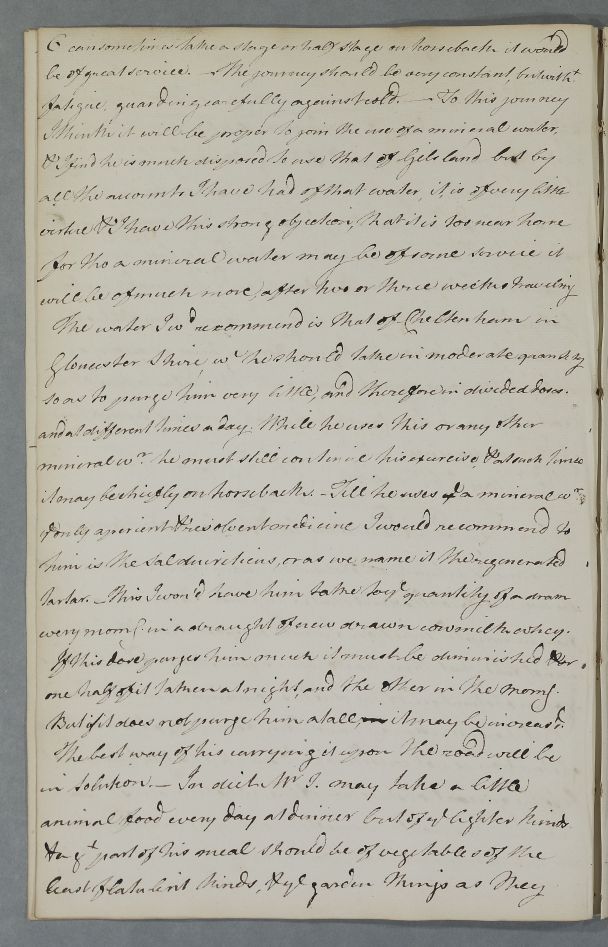 6 can sometimes take a stage or half stage on horseback it would
be of great service. — The journey should be very constant, but witht
fatigue, guarding carefully against cold. — To this journey
I think it will be proper to join the use of a mineral water,
& I find he is much disposed to use that of Gilsland but by
all the accounts I have had of that water, it is of very little
virtue & I have this strong objection, that it is too near home
for tho a mineral water may be of some service it
will be of much more, after two or three weeks traveling
The water I wd recommend is that of Cheltenham in
Gloucester Shire, wc he should take in moderate quantity
so as to purge him very little, and therefore in divided doses.
and at different times a day. While he uses this or any other
mineral wr. he must still continue his exercise, & at such times
it may be chiefly on horseback. – Till he uses a mineral wr
ye only aperient & resolvent medicine I would recommend to
him is the Sal diureticus, or as we name it the regenerated
tartar. – This I wou'd have him take to ye quantity of a dram
every morng. in a draught of new drawn cow milk whey.
If this dose purges him much it must be diminished or
one half of it taken at night, and the other in the morng.
But if it does not purge him at all, it may be increasd.
The best way of his carrying it upon the road will be
in Solution. — In diet Mr J. may take a little
animal food every day at dinner but of ye lighter kinds
& a gt part of his meal should be of vegetables of the
least flatulent kinds, & ye garden things as they